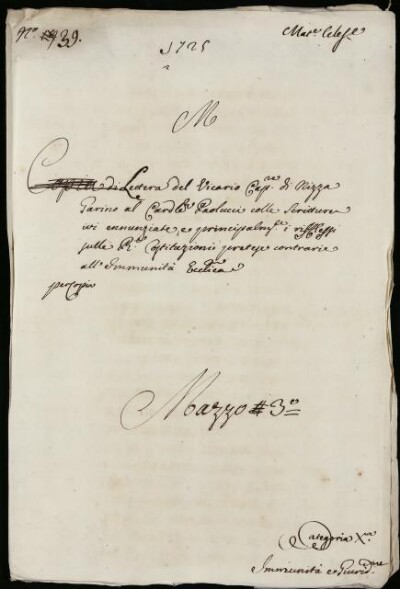 N.º 439.
Mat.e Eccles.e
1725
M
Copia di Lettera del Vicario Cap.re di Nizza
Garino al Card.le Paolucci colle Scritture
ivi ennunziate, e principalm.te i rifflessi
sulle R.e Costituzioni pretese contrarie
all'Immunità Eccl.ica
per copia
Mazzo # 3.º
Categoria X.ma
Immunità e Giurisd.ne